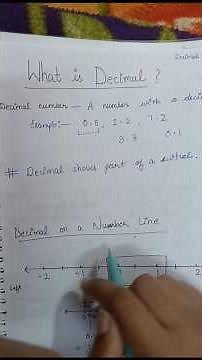 Decimal
What is Decimal ?
Decimal number — A number with a deci
Example:— 0.5, 2.2, 7.2
0.1
# Decimal shows part of a
Decimal on a Number Line
-2 -1 1 2
Left